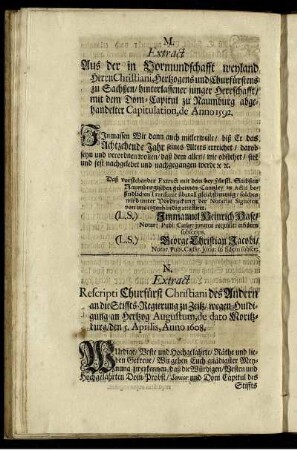 M.
Extract
Aus der in Vormundschafft weyland
Herrn Christiani, Hertzogens und Churfürstens
zu Sachsen/ hinterlassener junger Herrschafft/
mit dem Dom-Capitul zu Naumburg abge-
handelter Capitulation, de Anno 1592.
Inmassen Wir dann auch mitlerweile/ biß Er das
Achtzehende Jahr seines Alters erreichet/ darob
seyn und verordnen wollen/ daß dem allen/ wie obstehet/ stet
und fest nachgelebet und nachgegangen werde ꝛc. ꝛc.
Daß vorstehender Extract mit dem bey Fürstl. Sächsis.
Naumburgischen geheimen Cantzley in Actis
befindlichen
(L.S.) Immanuel Heinrich Hase/
Notar: Publ: Caesar:
(L.S.) George Christian Jacobi/
Notar. Publ. Caesar. jurat. in fidem
N.
Extract
Rescripti Churfürst Christiani des Andern
an die Stiffts-Regierung zu Zeitz/ wegen Huldi-
gung an Hertzog Augustum, de dato Moritz-
burg/ den 5. Aprilis, Anno 1608.
Würdige/ Veste und Hochgelahrte/ Räthe und lie-
ben Getreue/ Wir geben Euch gnädigster Mey-
nung zu erkennen/ daß die Würdigen/ Vesten und
Hochgelahrten Dom-Probst/ Senior und Dom Capitul des
Stiffts